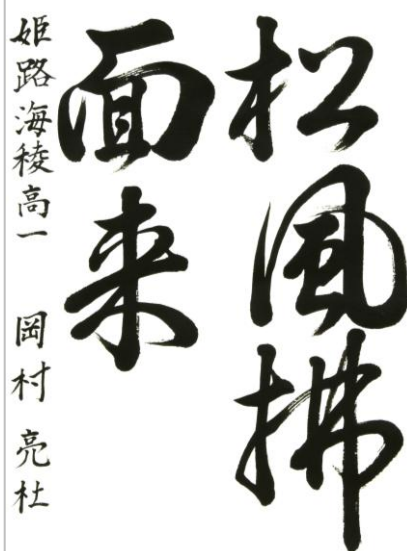 松風拂
面来
姫路海稜高一 岡村亮杜